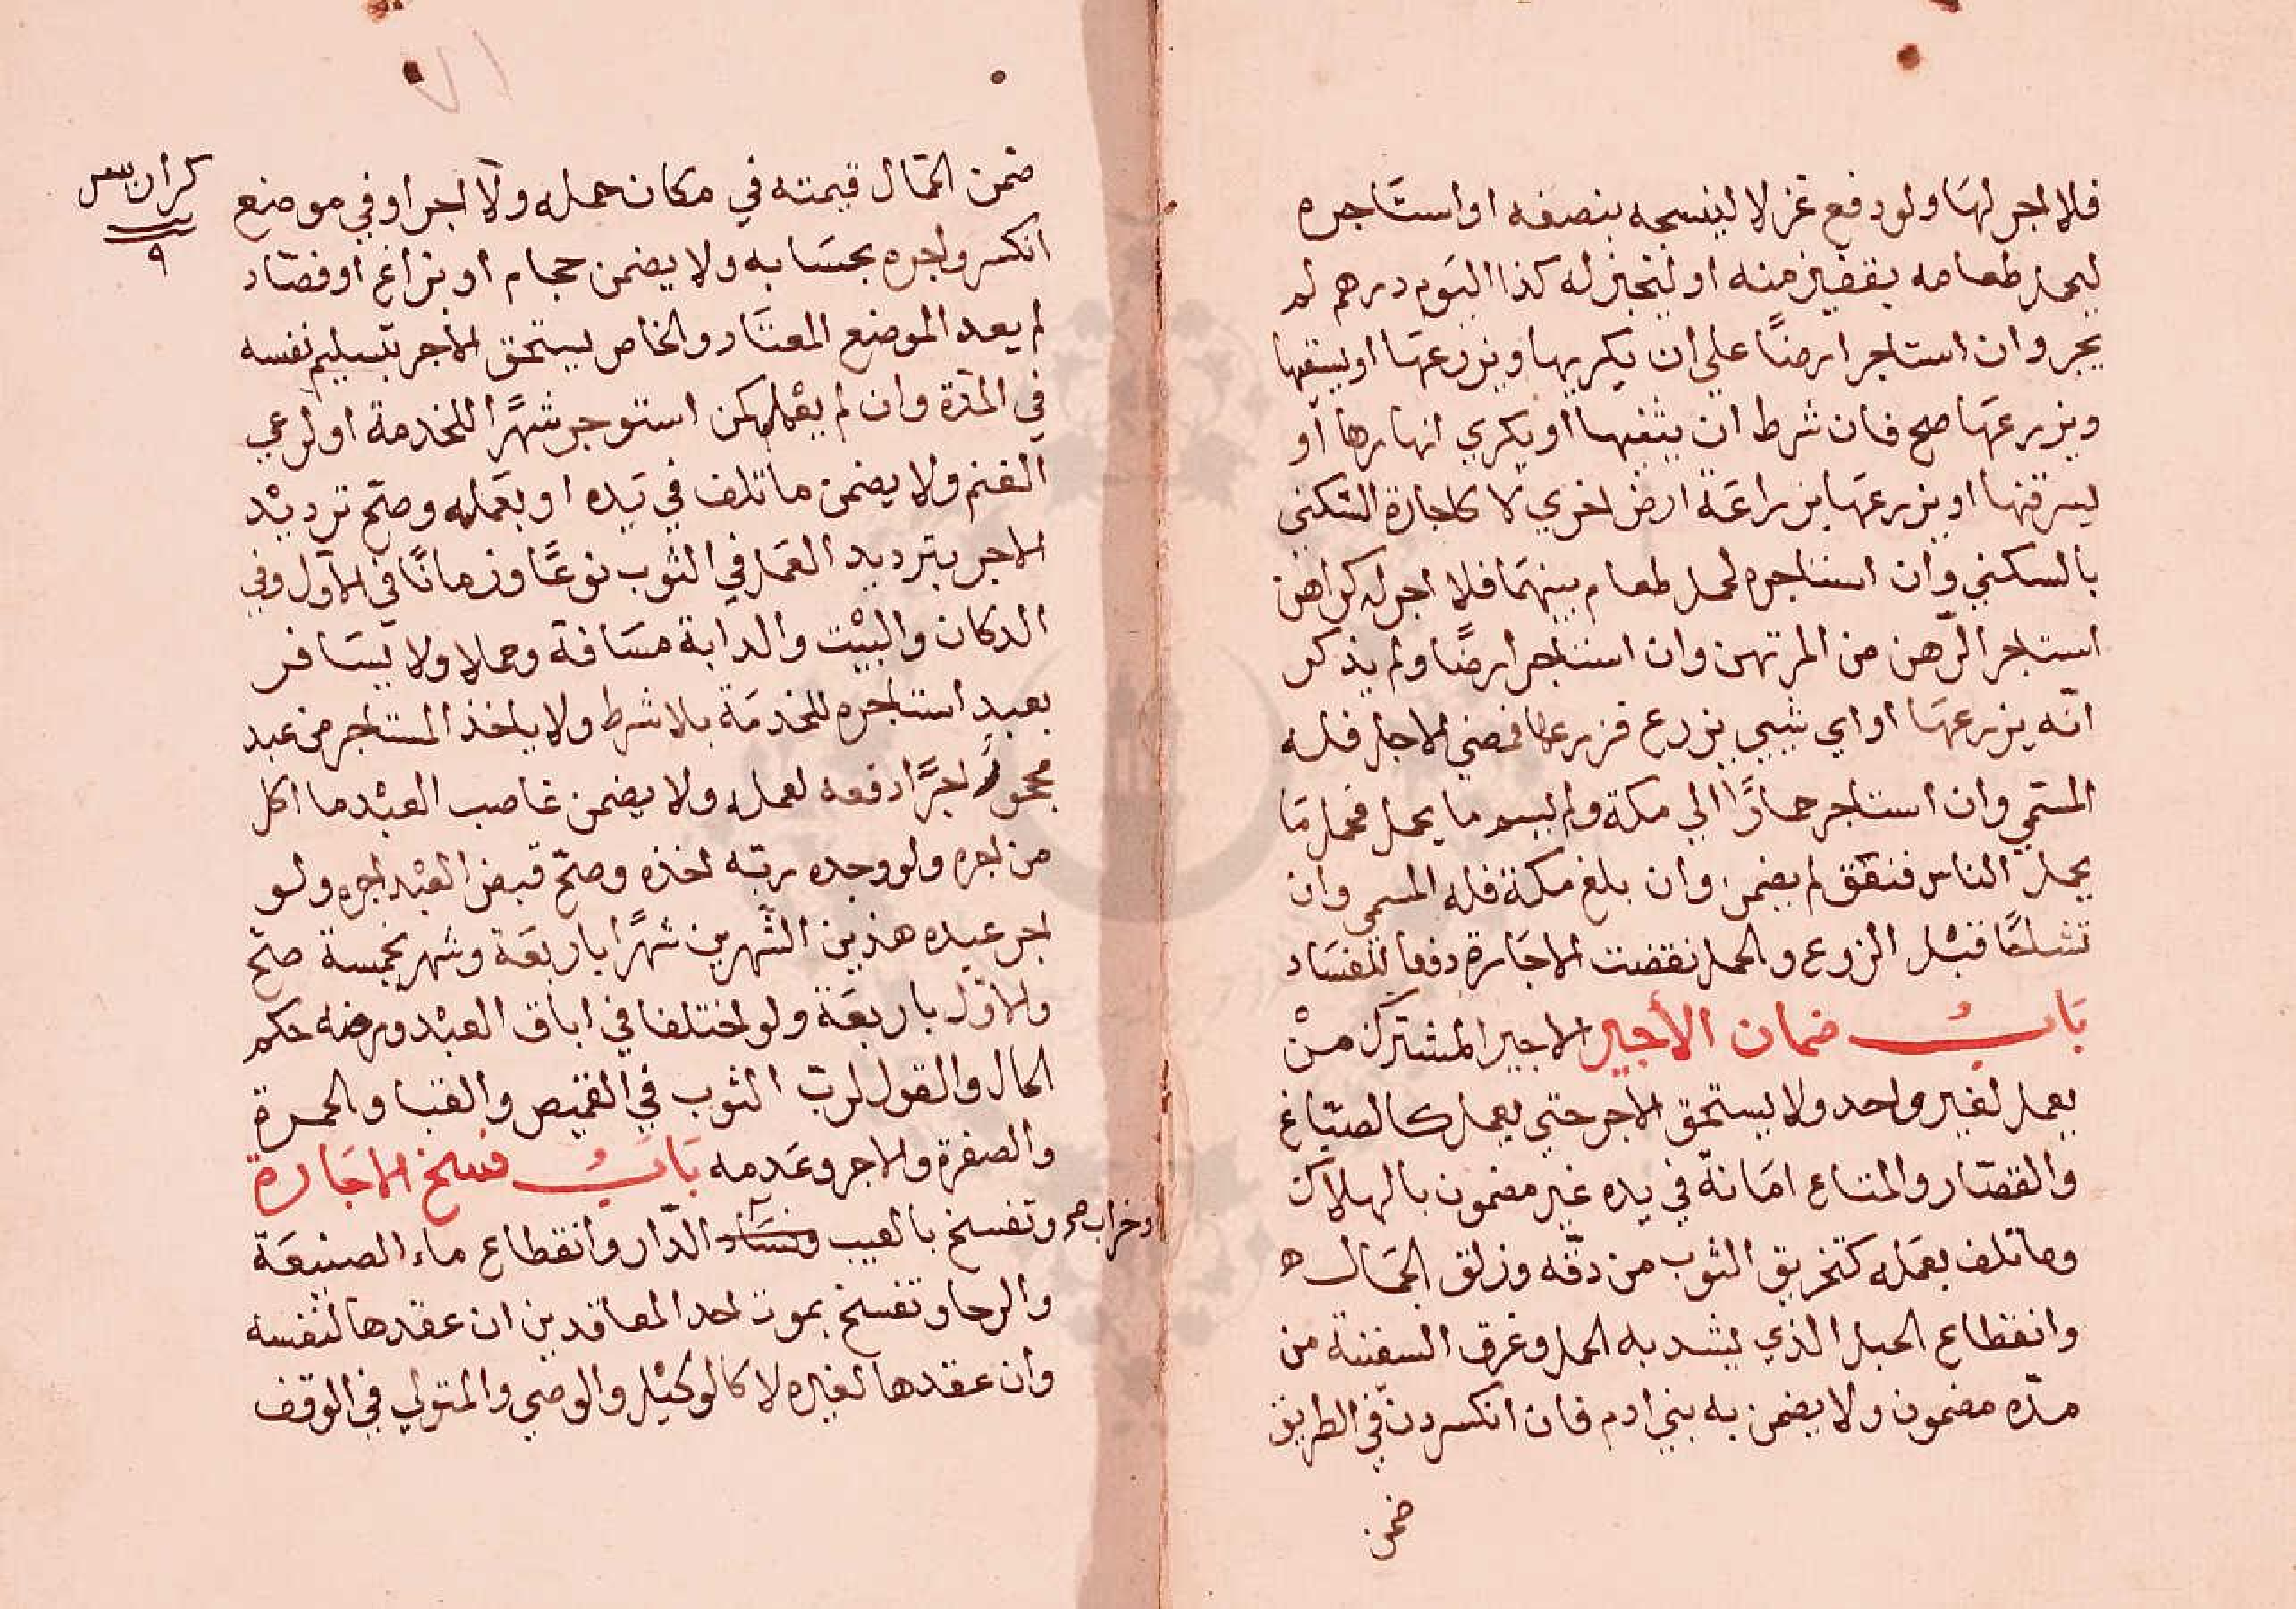 فلا اجر لها ولو دفع غزلا لينسجه بنصفه او استاجره
ليحمل طعامه بقفيز منه او ليخبز له كذا اليوم بدرهم لم
يجز وان استاجر ارضًا علي ان يكربها ويزرعها او يسقيها
ويزرعها صح فان شرط ان يثنيها او يكري انهارها او
يسرقنها او يزرعها بزراعة ارض اخري لا كاجارة السّكني
بالسكني وان استاجره لحمل طعام بينهما فلا اجر له كراهن
استاجر الرّهن من المرتهن وان استاجر ارضًا ولم يذكر
انّه يزرعها او اي شيي يزرع فزرعها فمضي الاجل فله
المسّمي وان استاجر حمارًا الي مكة ولم يسم ما يحمل فحمل مَا
يحمل الناس فنفق لم يضمن وان بلغ مكة فله المسمي وان
تشاحّا قبْل الزرع والحمل نقضت الاجَارة دفعا للفسَاد
بَابُ ضمان الأجير الاجير المشترك منْ
يعمل لغير واحد ولا يستحق الاجر حتي يعمل كالصبّاغ
والقصّار والمتاع امَانة في يده غير مضمون بالهلاك
وما تلف بعمَله كتخريق الثوب من دقّه وزلق الحمّال ه
وانقطاع الحبل الذي يشد به الحمل وغرق السفينة من
مدّه مضمون ولا يضمن به بني ادم فان انكسر دن في الطريق
ضمن
كراس
٩
ضمن الحمّال قيمته في مكان حمله ولا اجر او في موضع
انكسر واجره بحسَابه ولا يضمن حجام او بزاغ او فصّاد
لم يعد الموضع المعتَاد والخاص يستحق الاجر بتسليم نفسه
في المدّة وان لم يعْمل كمن استوجر شهرًا للخدمة او لرعي
الغنم ولا يضمن ما تلف في يَده او بعَمله وصحّ ترديْد
الاجر بترديد العَمل في الثوب نوعًا وزمانًا في الاول وفي
الدكان والبيْت والدابة مسَافة وحملا ولا يسَافر
بعبدٍ استاجره للخدمَة بلا شرط ولا ياخذ المستاجر من عبد
محجور اجرًا دفعه لعمله ولا يضمن غاصب العبْد ما اكل
من اجره ولو وجده ربّه اخذه وصحّ قبض العبْد اجره ولو
اجر عبده هذين الشّهرين شهرًا باربعَة وشهر بخمسة صحّ
والاوّل باربعَة ولو اختلفا في اباق العبْد ومرضه حكم
الحال والقول لربّ الثوب في القميص والقبا والحمرة
والصفرة والاجر وعَدمه بَابُ فسخ الاجَارة
وتفسخ بالعيب وفسَاد الدّار وانقطاع ماء الضيعَة
وخراب صح
والرحا وتفسخ بموت احد المعاقدين ان عقدها لنفسه
وان عقدها لغيره لا كالوكيْل والوصي والمتولي في الوقف